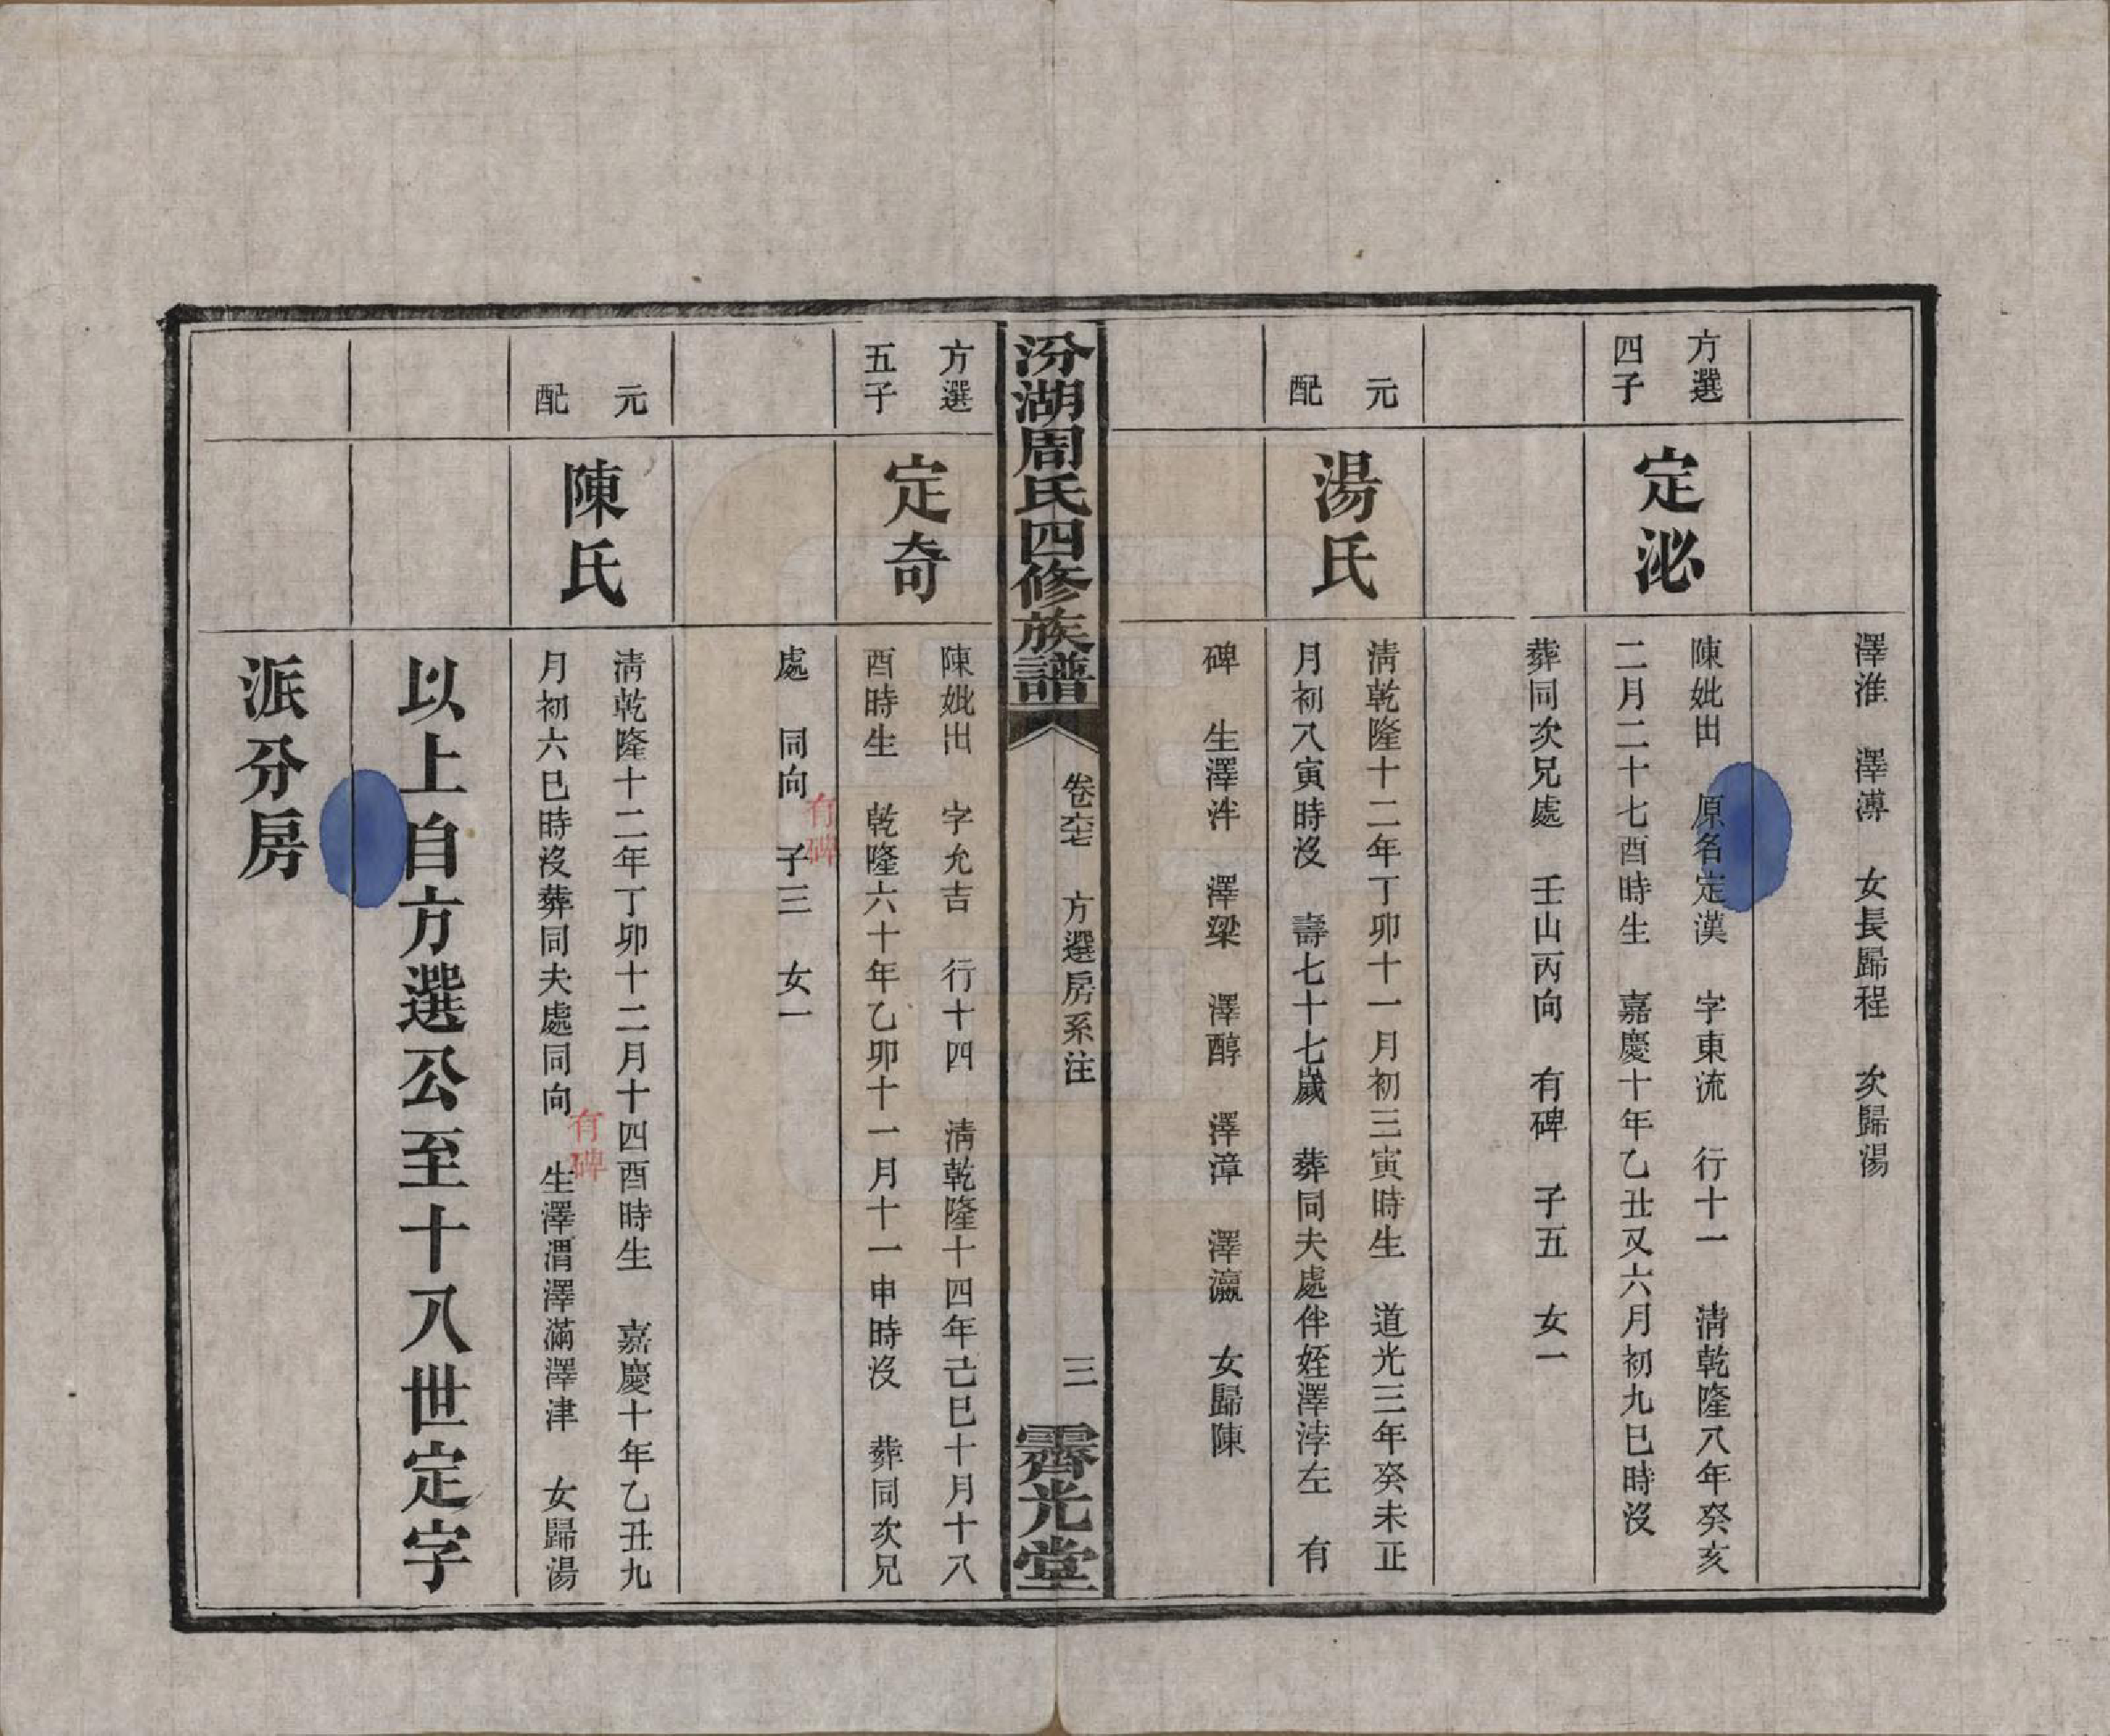 澤淮　澤溥　女長歸程　次歸湯
方選
四子
定泌
陳妣出　原名定漢　字東流　行十一　清乾隆八年癸亥
二月二十七酉時生　嘉慶十年乙丑又六月初九巳時沒
葬同次兄處　壬山丙向　有碑　子五　女一
元
配
湯氏
清乾隆十二年丁卯十一月初三寅時生　道光三年癸未正
月初八寅時沒　壽七十七歲　葬同夫處伴姪澤浡左　有
碑　生澤泮　澤梁　澤醇　澤漳　澤瀛　女歸陳
汾湖周氏四修族譜
卷六七　方選房系注
三
霽光堂
方選
五子
定奇
陳妣出　字允吉　行十四　清乾隆十四年己巳十月十八
酉時生　乾隆六十年乙卯十一月十一申時沒　葬同次兄
處　同向　子三　女一
有碑
元
配
陳氏
清乾隆十二年丁卯十二月十四酉時生　嘉慶十年乙丑九
月初六巳時沒葬同夫處同向　生澤渭澤滿澤津　女歸湯
有碑
以上自方選公至十八世定字
派分房